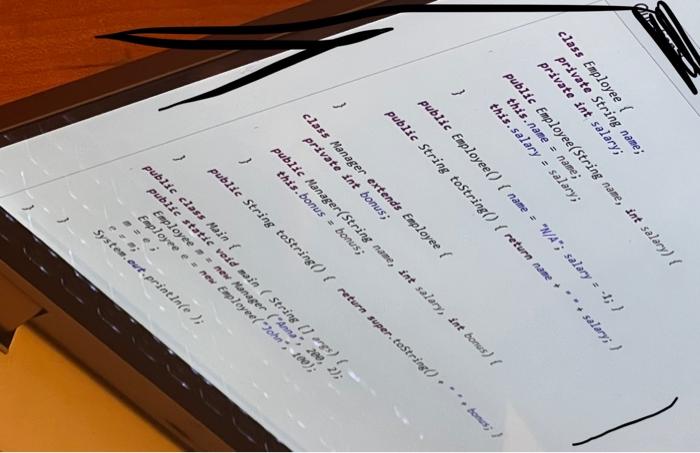 class Employee {
private String name;
private int salary;
public Employee(String name, int salary) {
this.name = name;
this.salary = salary;
}
public Employee() { name = "N/A"; salary = -1; }
public String toString() { return name + " " + salary; }
}
class Manager extends Employee {
private int bonus;
public Manager(String name, int salary, int bonus) {
this.bonus = bonus;
}
public String toString() { return super.toString() + " " + bonus; }
}
public class Main {
public static void main ( String [] args) {
Employee m = new Manager ("Anna", 200, 2);
Employee e = new Employee("John", 100);
m = e;
e = m;
System.out.println(e );
}
}